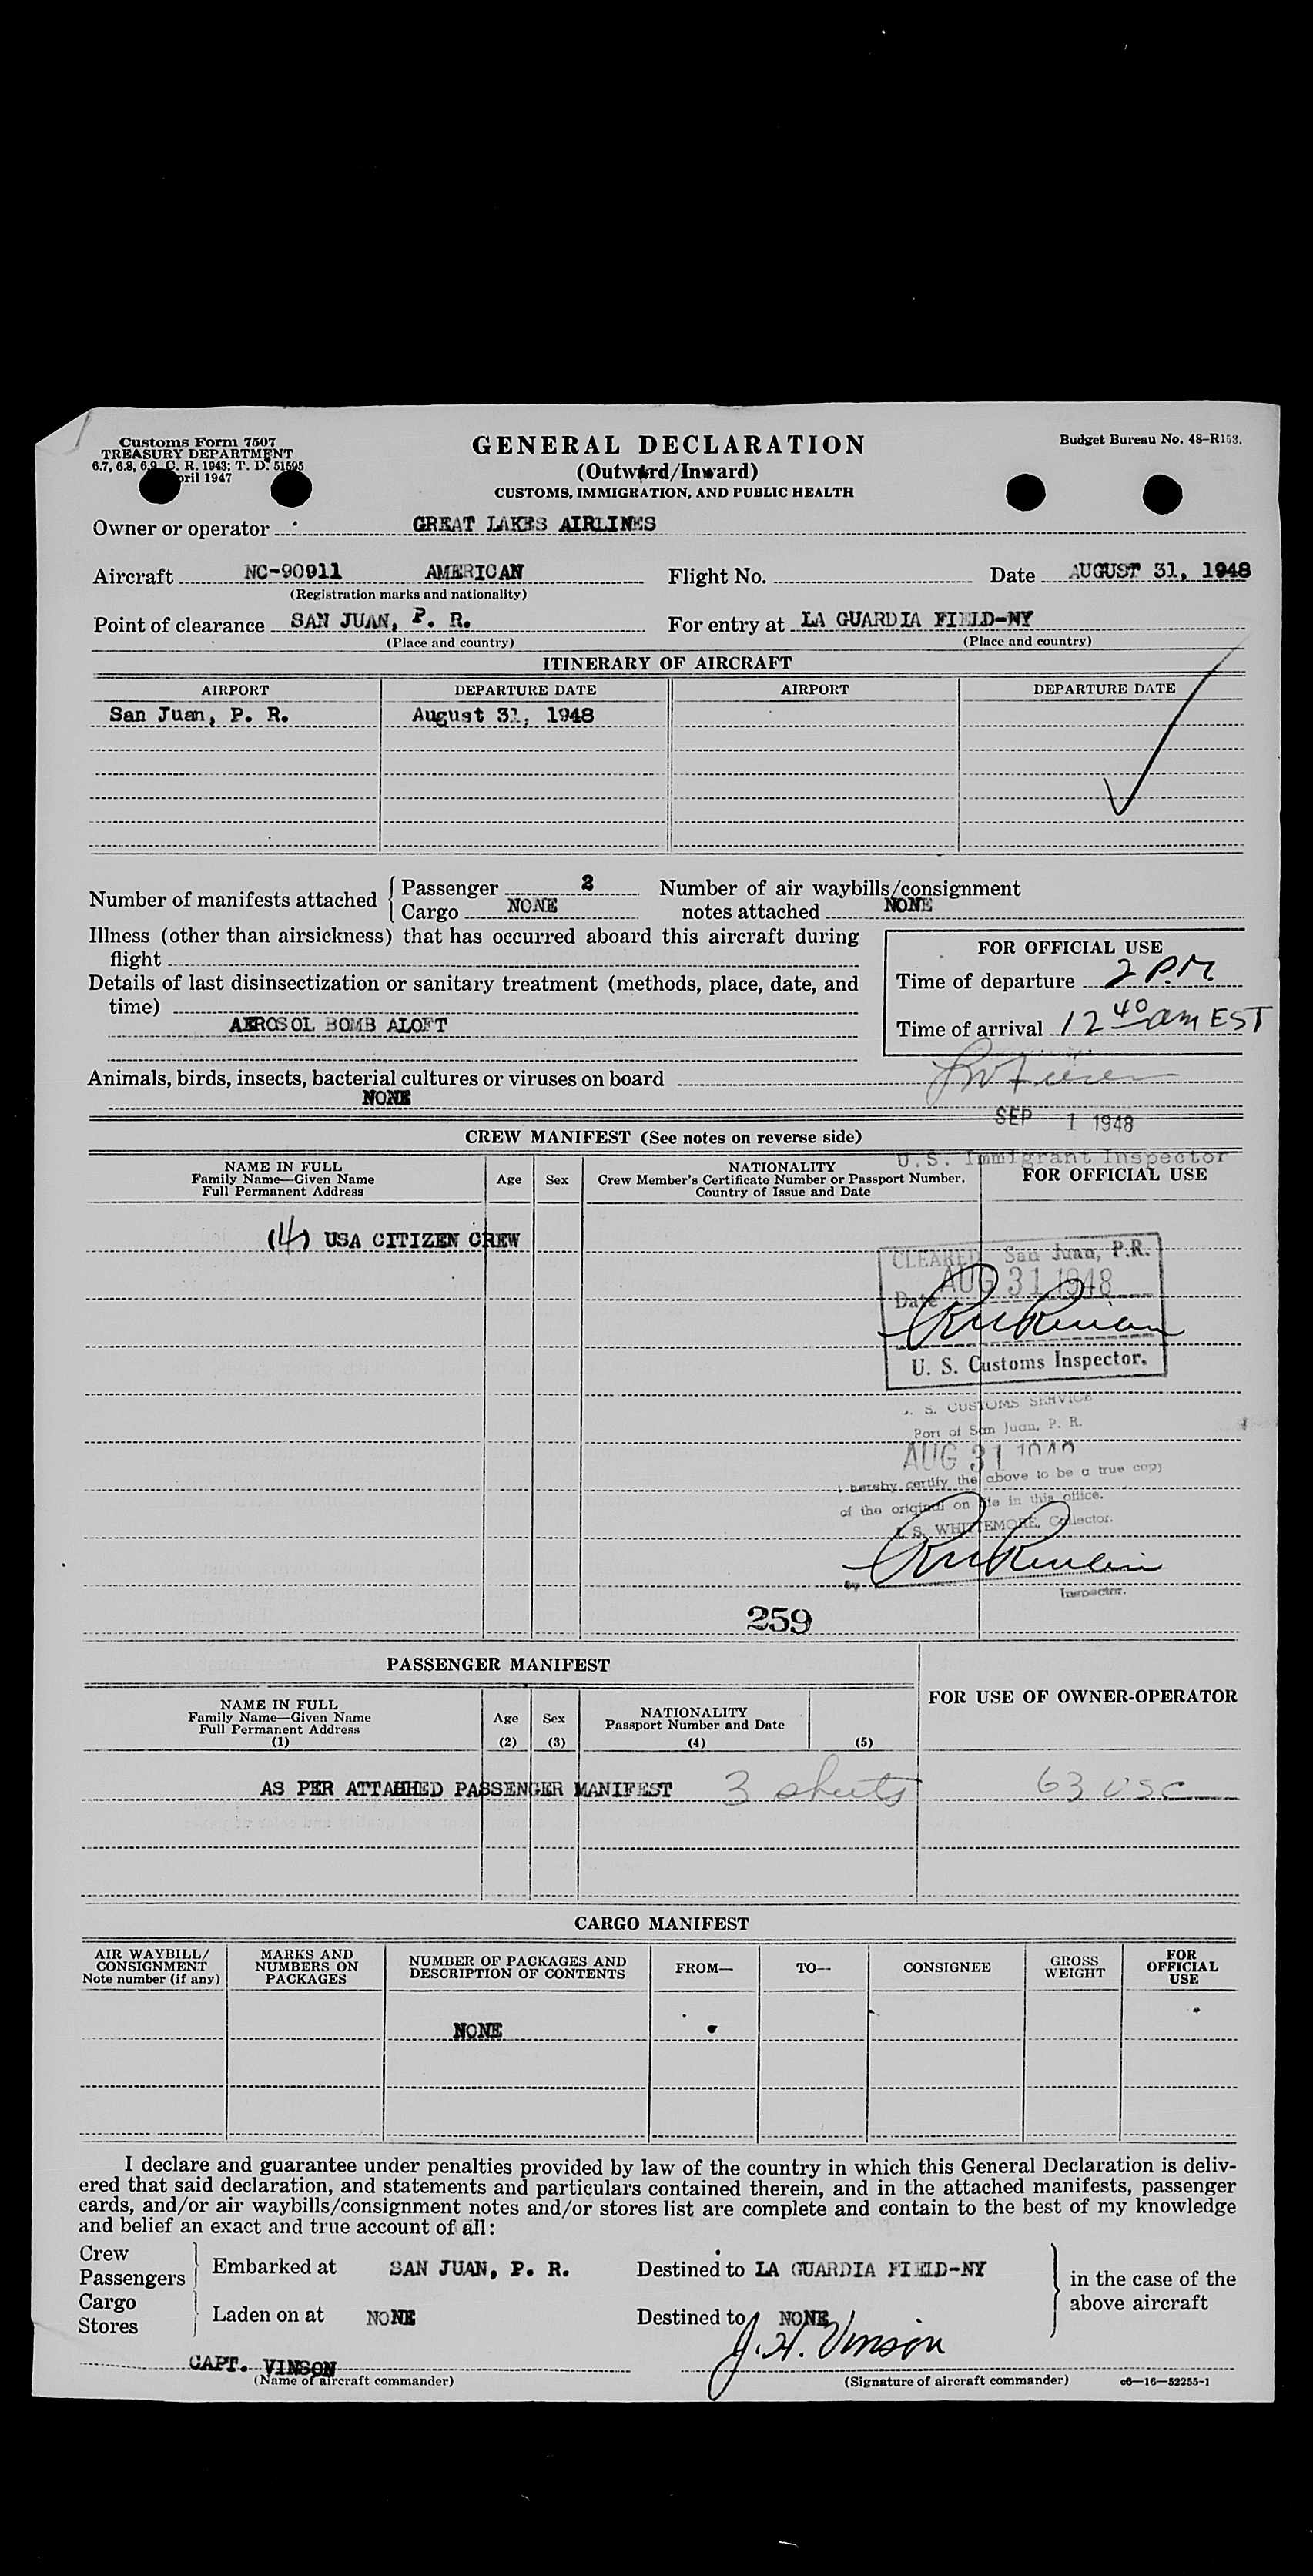 Customs Form 7507
TREASURY DEPARTMENT
6.7, 6.8, 6.9, C. R. 1943; T. D. 51595
April 1947
GENERAL DECLARATION
(Outward/Inward)
CUSTOMS, IMMIGRATION, AND PUBLIC HEALTH
Budget Bureau No. 48-R153.
Owner or operator GREAT LAKES AIRLINES
Aircraft NC-90911 AMERICAN Flight No. Date AUGUST 31, 1948
(Registration marks and nationality)
Point of clearance SAN JUAN, P. R. For entry at LA GUARDIA FIELD-NY
(Place and country) (Place and country)
ITINERARY OF AIRCRAFT
AIRPORT DEPARTURE DATE AIRPORT DEPARTURE DATE
San Juan, P. R. August 31, 1948
Number of manifests attached Passenger 2 Number of air waybills/consignment
Cargo NONE notes attached NONE
Illness (other than airsickness) that has occurred aboard this aircraft during
flight
Details of last disinsectization or sanitary treatment (methods, place, date, and
time)
AEROSOL BOMB ALOFT
FOR OFFICIAL USE
Time of departure 2 P.M.
Time of arrival 12 40 am EST
Animals, birds, insects, bacterial cultures or viruses on board
NONE
SEP 1 1948
U.S. Immigrant Inspector
CREW MANIFEST (See notes on reverse side)
NAME IN FULL
Family Name—Given Name
Full Permanent Address
Age Sex
NATIONALITY
Crew Member's Certificate Number or Passport Number,
Country of Issue and Date
FOR OFFICIAL USE
(4) USA CITIZEN CREW
CLEARED San Juan, P.R.
Date AUG 31 1948
U. S. Customs Inspector.
U. S. CUSTOMS SERVICE
Port of San Juan, P. R.
AUG 31 1948
I hereby certify the above to be a true copy
of the original on file in this office.
S. WHITTEMORE, Collector.
By
Inspector.
259
PASSENGER MANIFEST
FOR USE OF OWNER-OPERATOR
NAME IN FULL
Family Name—Given Name
Full Permanent Address
(1)
Age
(2)
Sex
(3)
NATIONALITY
Passport Number and Date
(4) (5)
AS PER ATTAHHED PASSENGER MANIFEST 3 sheets 63 USC
CARGO MANIFEST
AIR WAYBILL/
CONSIGNMENT
Note number (if any)
MARKS AND
NUMBERS ON
PACKAGES
NUMBER OF PACKAGES AND
DESCRIPTION OF CONTENTS
FROM— TO— CONSIGNEE
GROSS
WEIGHT
FOR
OFFICIAL
USE
NONE
I declare and guarantee under penalties provided by law of the country in which this General Declaration is deliv-
ered that said declaration, and statements and particulars contained therein, and in the attached manifests, passenger
cards, and/or air waybills/consignment notes and/or stores list are complete and contain to the best of my knowledge
and belief an exact and true account of all:
Crew
Passengers
Embarked at SAN JUAN, P. R. Destined to LA GUARDIA FIELD-NY
Cargo
Stores
Laden on at NONE Destined to NONE
in the case of the
above aircraft
CAPT. VINSON J. H. Vinson
(Name of aircraft commander) (Signature of aircraft commander) c6—16—52255-1